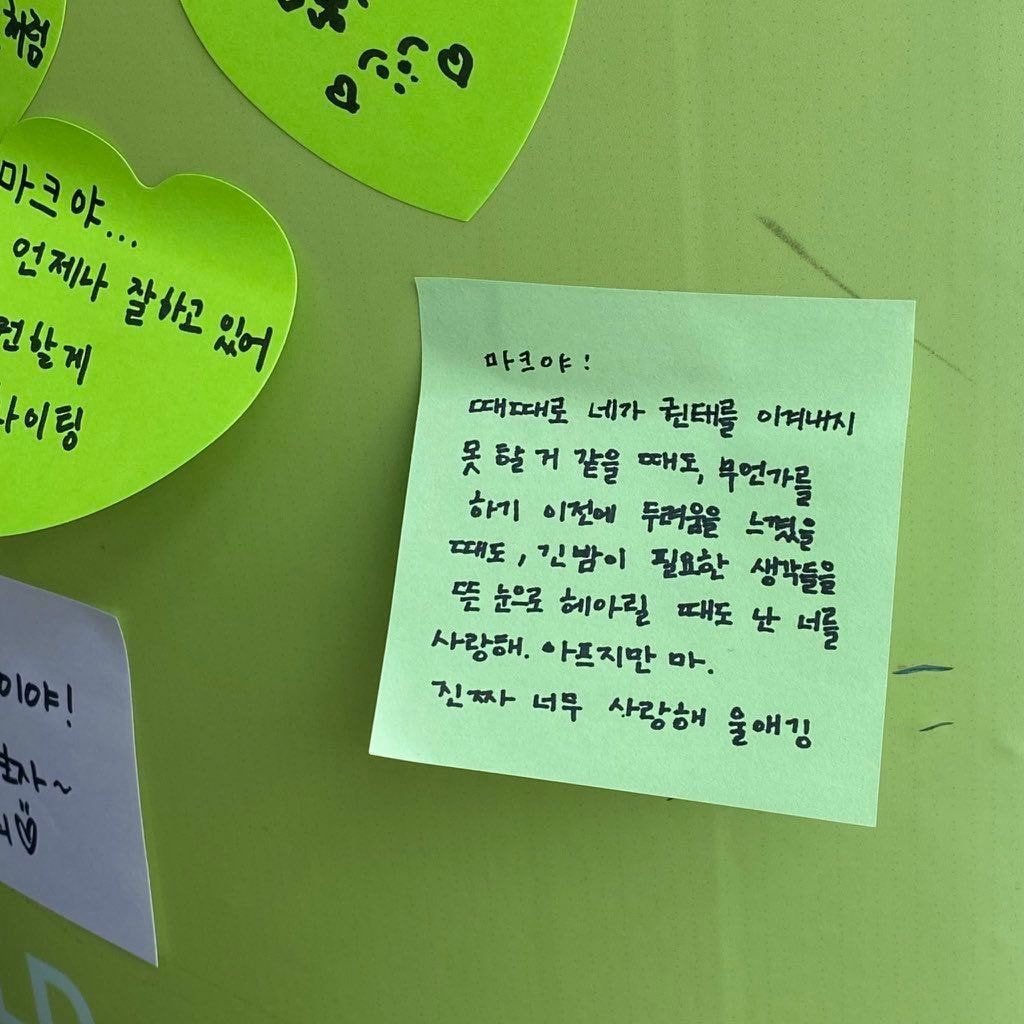 처럼
마크야...
언제나 잘하고 있어
할게
이팅
마크야!
때때로 네가 권태를 이겨내지
못 할 거 같을 때도, 무언가를
하기 이전에 두려움을 느꼈을
때도, 긴 밤이 필요한 생각들을
뜬 눈으로 헤아릴 때도 난 너를
사랑해. 아프지만 마.
진짜 너무 사랑해 울애깅
이야!
자~